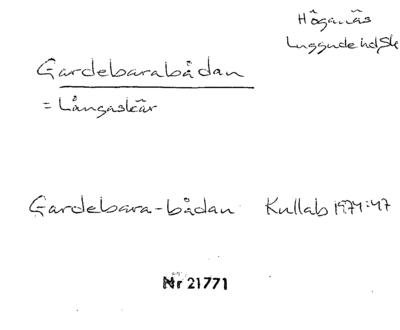 Höganäs
Luggude hd, Sk
Gardebarabådan
= Långaskär
Gardebara-bådan Kullab 1974:47
Nr 21771